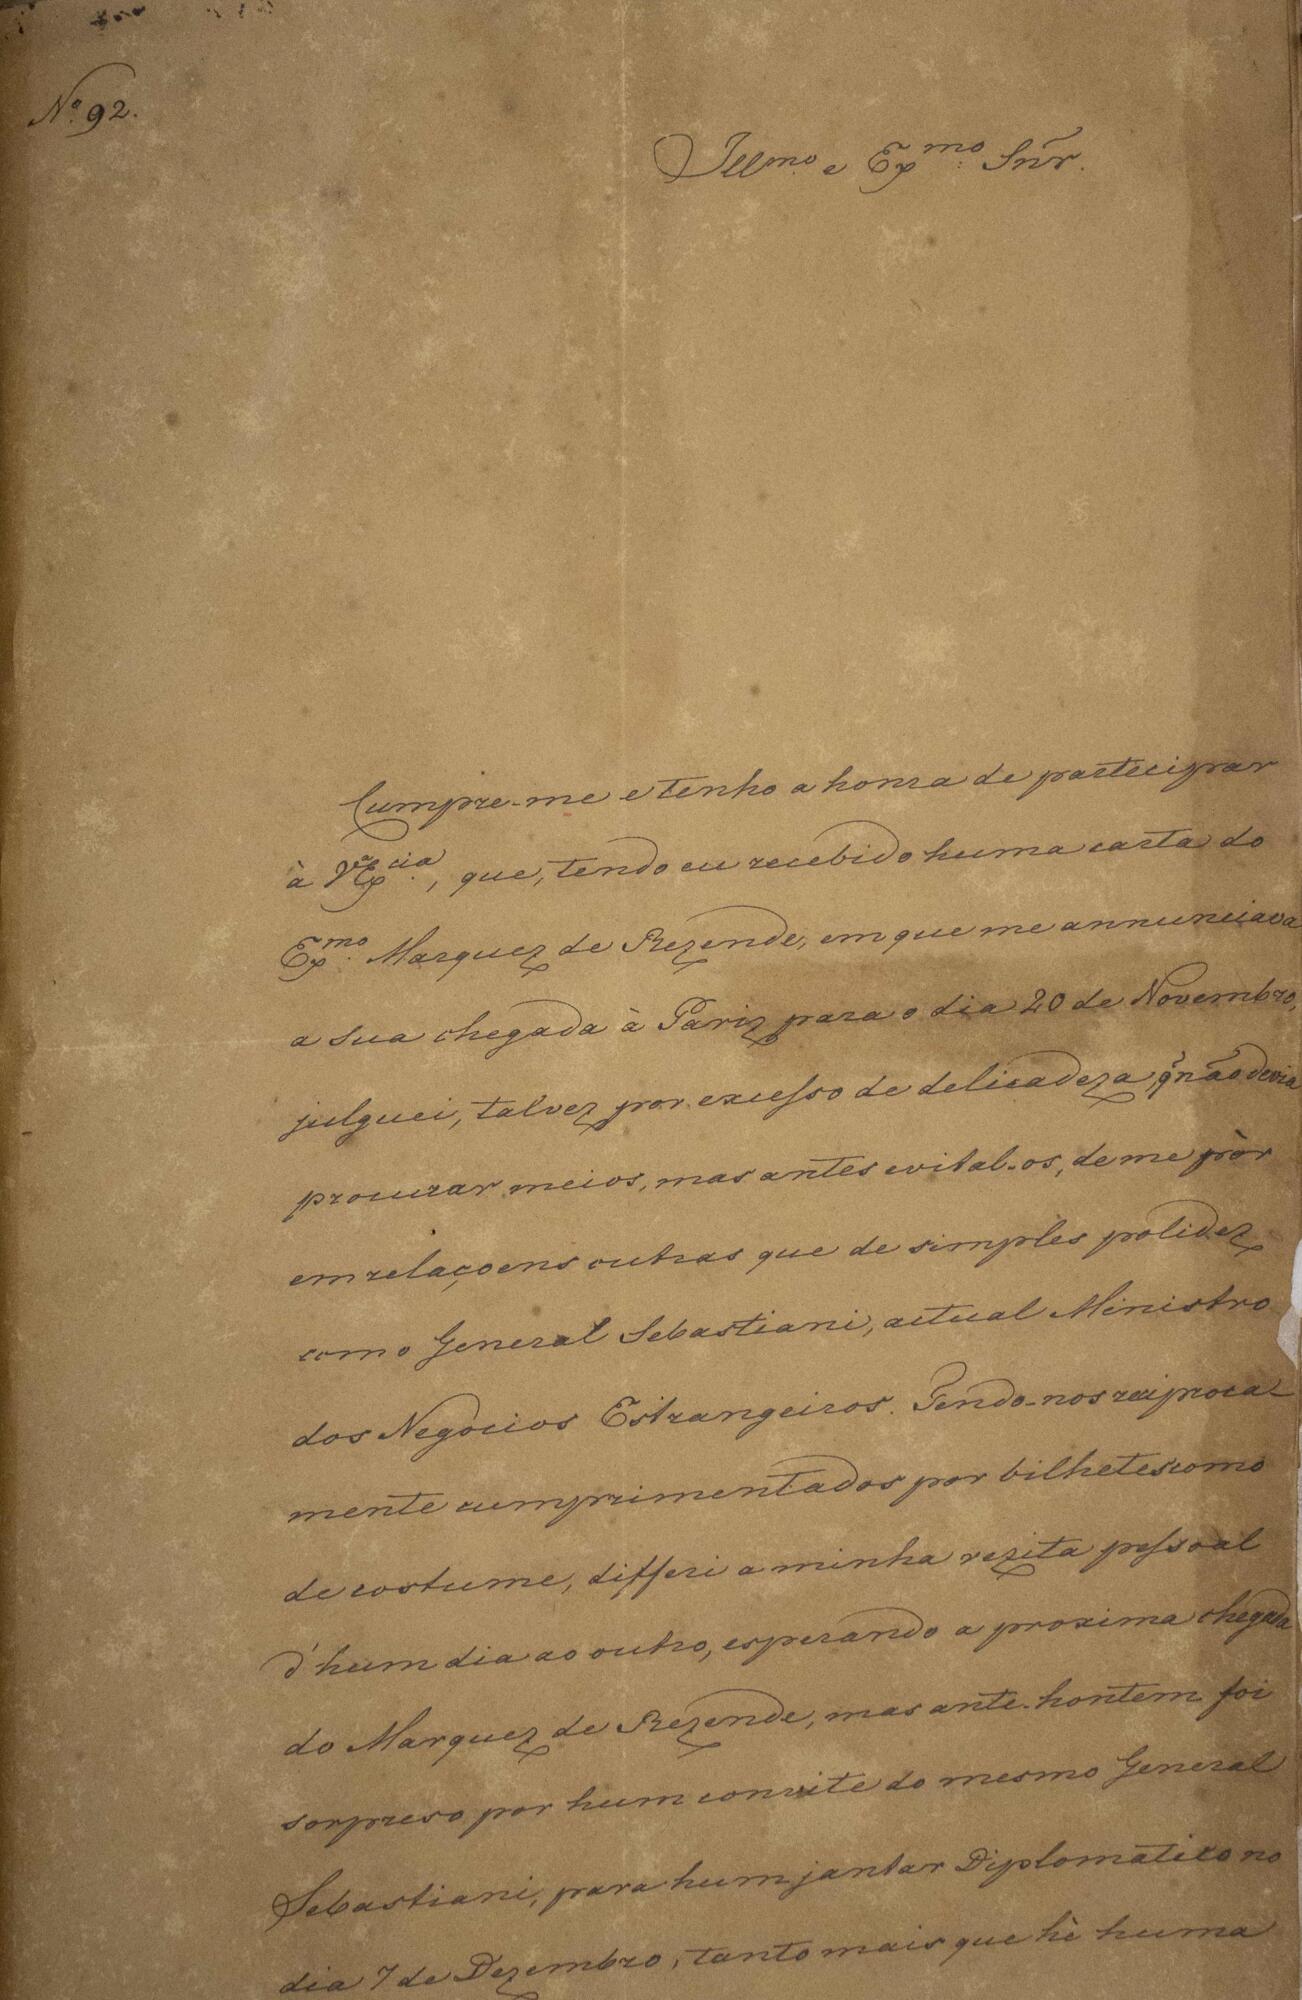 Nº 92.
Illmo. e Exmo. Snr.
Cumpre-me e tenho a honra de partecipar
à VªExcia., que, tendo eu recebido huma carta do
Exmo. Marquez de Rezende, em que me annunciava
a sua chegada à Pariz para o dia 20 de Novembro,
julguei, talvez por excesso de delicadeza, q̃ não devia
procurar meios, mas antes evital-os, de me pôr
em relaçoens outras que de simples polidez
com o General Sebastiani, actual Ministro
dos Negocios Estrangeiros. Tendo-nos reciproca-
mente cumprimentados por bilhetes como
de costume, differi a minha vezita pessoal
d'hum dia ao outro, esperando a proxima chegada
do Marquez de Rezende, mas ante-hontem foi
sorpreso por hum convite do mesmo General
Sebastiani, para hum jantar Diplomatico no
dia 7 de Dezembro, tanto mais que hè huma